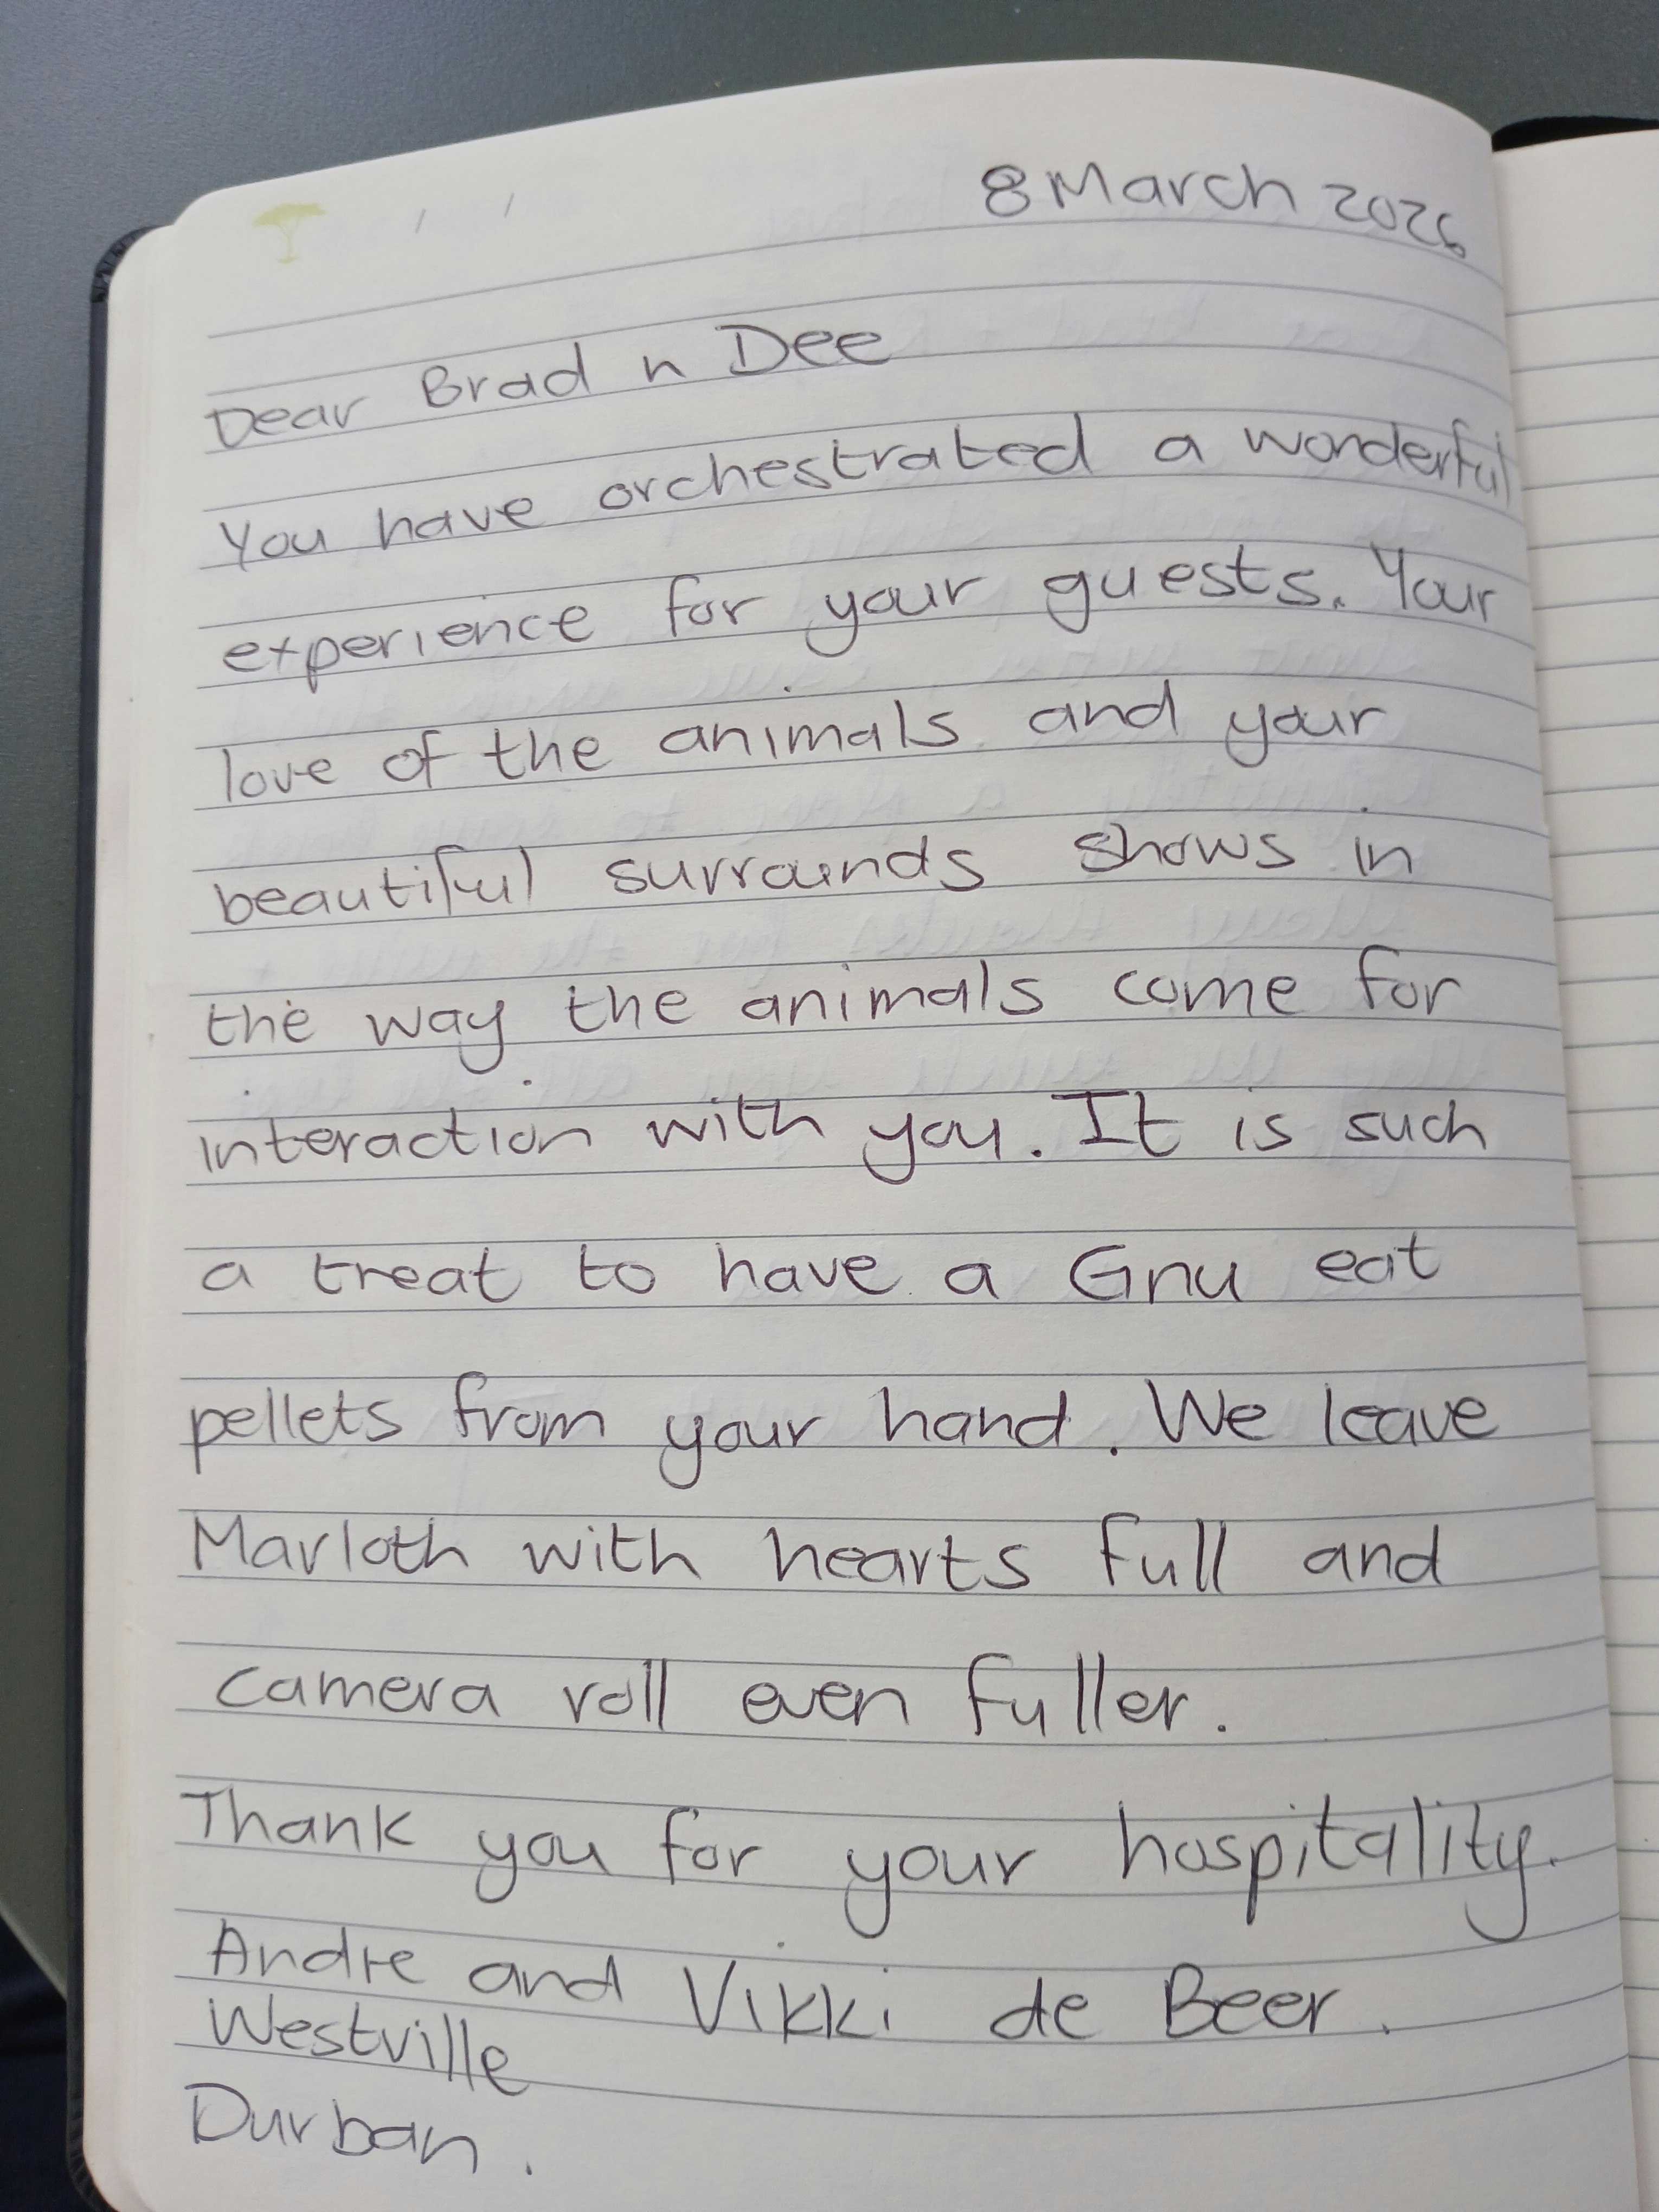 8 March 2026
Dear Brad n Dee
You have orchestrated a wonderful
experience for your guests. Your
love of the animals and your
beautiful surrounds shows in
the way the animals come for
interaction with you. It is such
a treat to have a Gnu eat
pellets from your hand. We leave
Marloth with hearts full and
camera roll even fuller.
Thank you for your hospitality.
Andre and Vikki de Beer.
Westville
Durban.